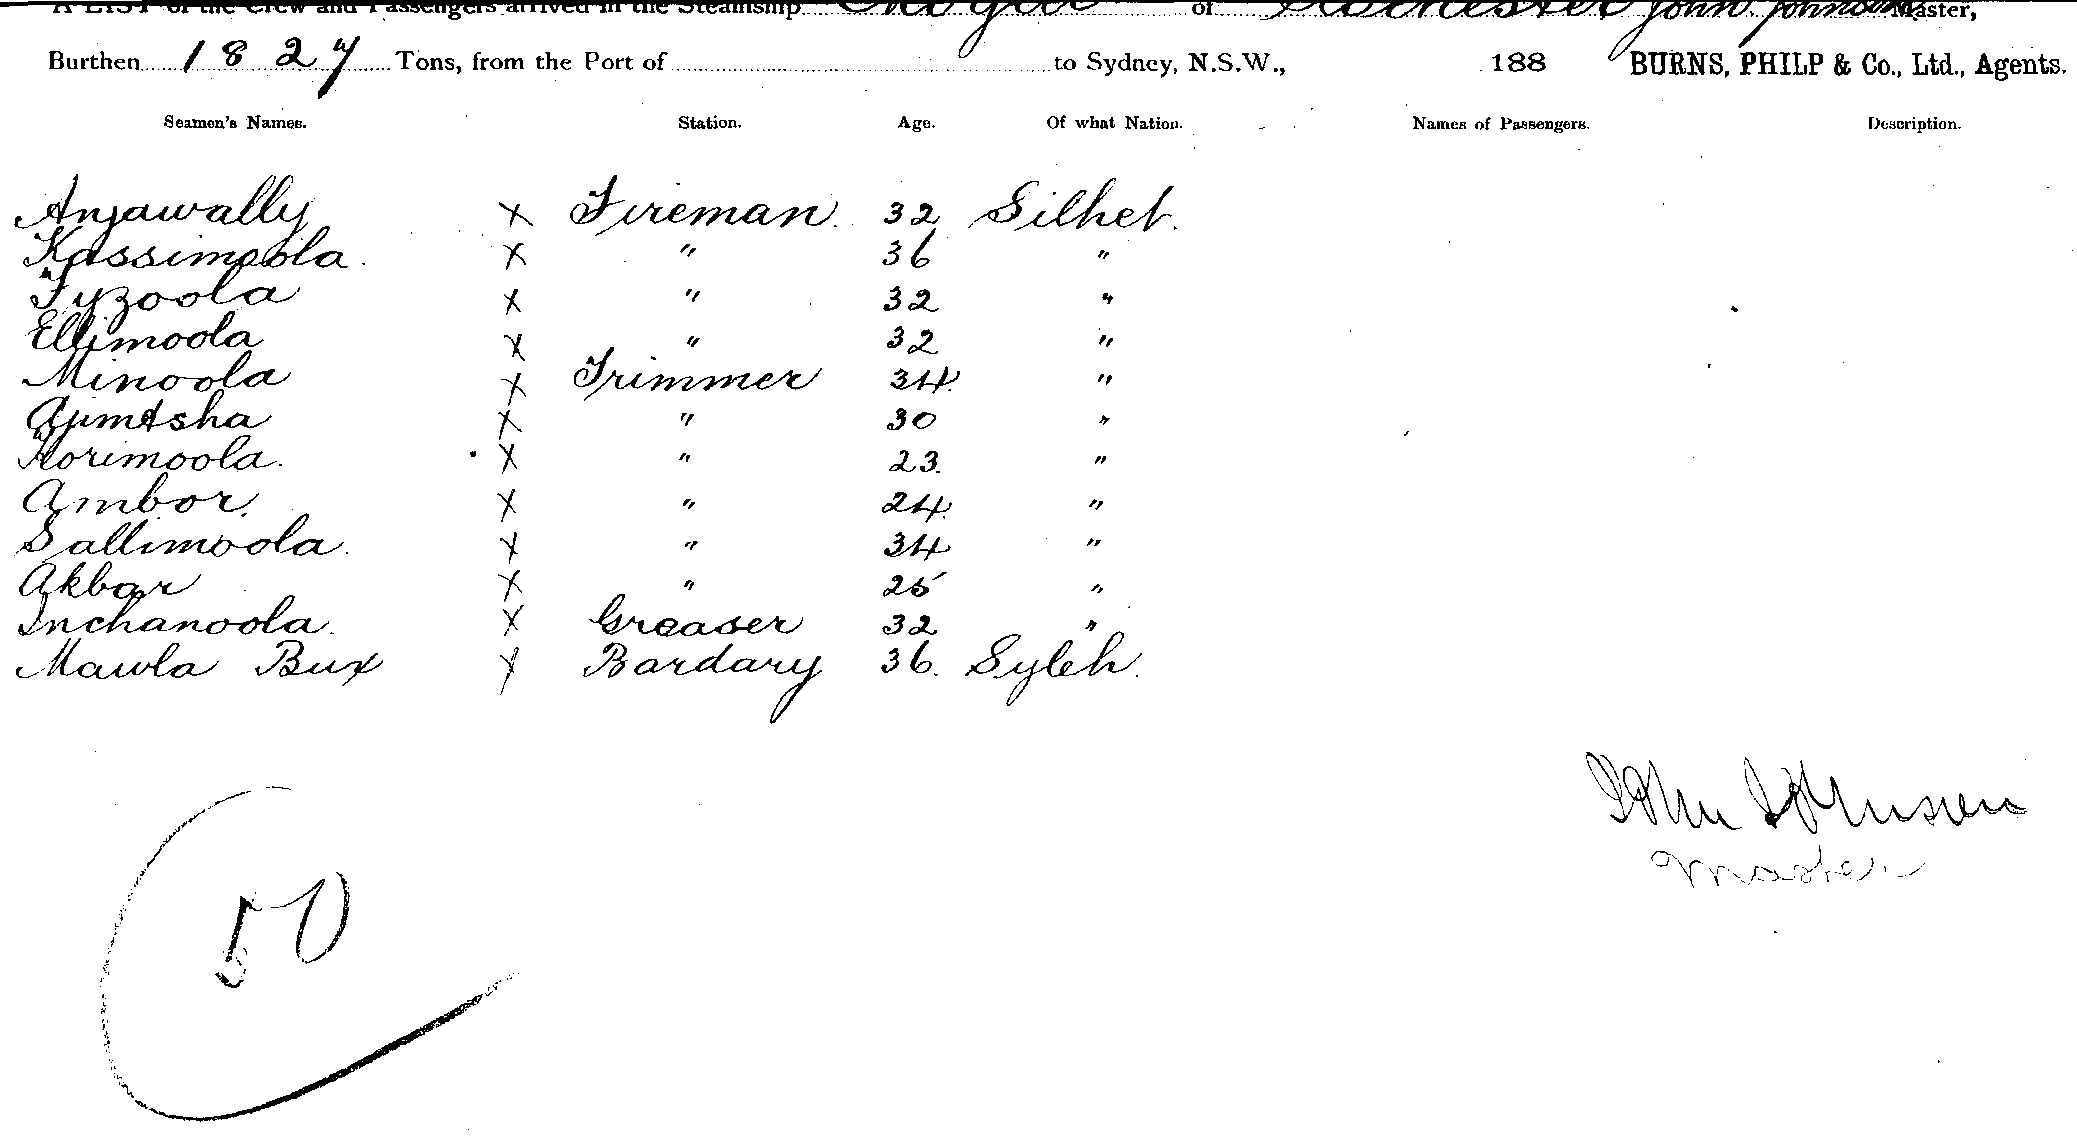 A LIST of the Crew and Passengers arrived in the Steamship of Rochester John Johnson Master,
Burthen 1827 Tons, from the Port of to Sydney, N.S.W., 188 BURNS, PHILP & Co., Ltd., Agents.
Seamen's Names. Station. Age. Of what Nation. Names of Passengers. Description.
Anjawally x Fireman 32 Silhet.
Kassimoola. x " 36 "
Fyzoola x " 32 "
Ellimoola x " 32 "
Minoola x Trimmer 34 "
x " 30 "
Korimoola. x " 23. "
Ambor. x " 24 "
Sallimoola. x " 34 "
Akbar x " 25 "
Inchanoola. x Greaser 32 "
Mawla Bux x Bardary 36. Syleh.
John Johnson
Master
50